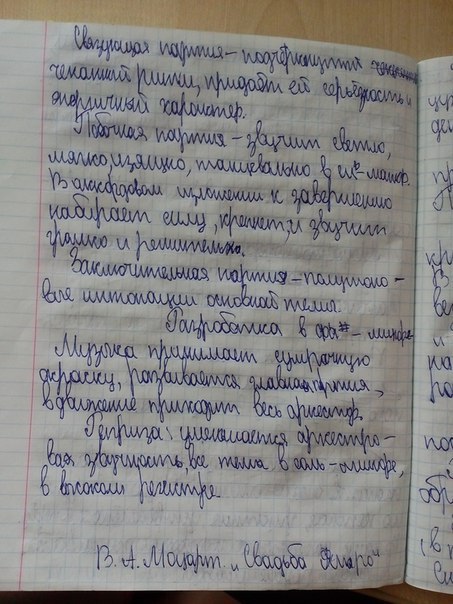 Связующая партия - подчёркнутый
чеканный ритм, придаёт ей серьёзность и
энергичный характер.
Побочная партия - звучит светло,
мягко, изящно, танцевально в сиb-мажор.
В аккордовом изложении к завершению
набирает силу, крепнет, и звучит
громко и решительно.
Заключительная партия - полутоно-
вые интонации основной темы.
Разработка в фа# - миноре
Музыка принимает сумрачную
окраску, развивается главная партия,
в движение приходит весь оркестр.
Реприза: уменьшается оркестро-
вая звучность, все темы в соль-миноре,
в высоком регистре.
В. А. Моцарт "Свадьба Фигаро"